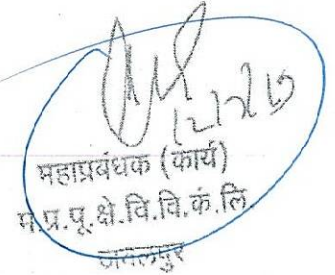 महाप्रबंधक (कार्य)
म.प्र.पू.क्षे.वि.वि.कं.लि
जबलपुर